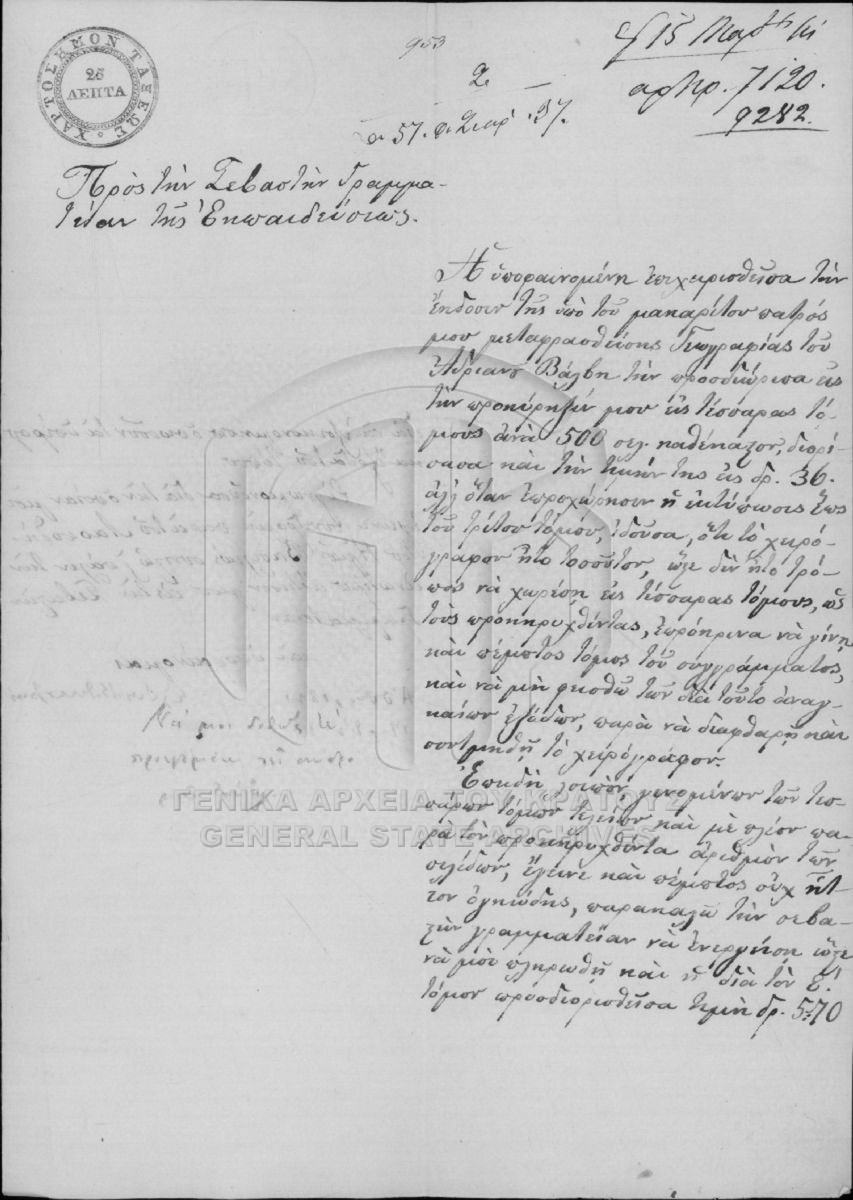 ΧΑΡΤΟΣΗΜΟΝ ΤΑΞΕΩΣ
25
ΛΕΠΤΑ
953
15 Μαρτ
αριθ. 7120.
9282.
2
57. 37.
Πρὸς τὴν Σεβαστὴν Γραμμα-
τείαν τῆς Ἐκπαιδεύσεως.
Ἡ ὑποφαινομένη ἐπιχειρισθεῖσα τὴν
ἔκδοσιν τῆς ὑπὸ τοῦ μακαρίτου πατρός
μου μεταφρασθείσης Γεωγραφίας τοῦ
Ἀδριανοῦ Βάλβη τὴν προσδιώρισα εἰς
τὴν προκήρυξίν μου εἰς τέσσαρας τό-
μους ἀνὰ 500 σελ. καθέκαστον, διορί-
σασα καὶ τὴν τιμήν της εἰς δρ. 36.
ἀλλ' ὅταν ἐπροχώρησεν ἡ ἐκτύπωσις ἕως
τοῦ τρίτου τόμου, ἰδοῦσα, ὅτι τὸ χειρό-
γραφον ἦτο τοσοῦτον, ὥστε δὲν ἦτο τρό-
πος νὰ χωρέσῃ εἰς τέσσαρας τόμους, ὡς
τοὺς προκηρυχθέντας, ἐπρόκρινα νὰ γίνῃ
καὶ πέμπτος τόμος τοῦ συγγράμματος,
καὶ νὰ μὴ φεισθῶ τῶν διὰ τοῦτο ἀναγ-
καίων ἐξόδων, παρὰ νὰ διαφθαρῇ καὶ
συντμηθῇ τὸ χειρόγραφον.
Ἐπειδὴ λοιπὸν, γενομένων τῶν τεσ-
σάρων τόμων τελείων καὶ μὲ πλέον πα-
ρὰ τὸν προκηρυχθέντα ἀριθμὸν τῶν
σελίδων, ἔγεινε καὶ πέμπτος οὐχ ἧτ-
τον ὀγκώδης, παρακαλῶ τὴν σεβα-
στὴν γραμματεῖαν νὰ ἐνεργήσῃ ὥστε
νὰ μοὶ πληρωθῇ καὶ ἡ διὰ τὸν Ε΄.
τόμον προσδιορισθεῖσα τιμὴ δρ. 5,70
ΓΕΝΙΚΑ ΑΡΧΕΙΑ ΤΟΥ ΚΡΑΤΟΥΣ
GENERAL STATE ARCHIVES